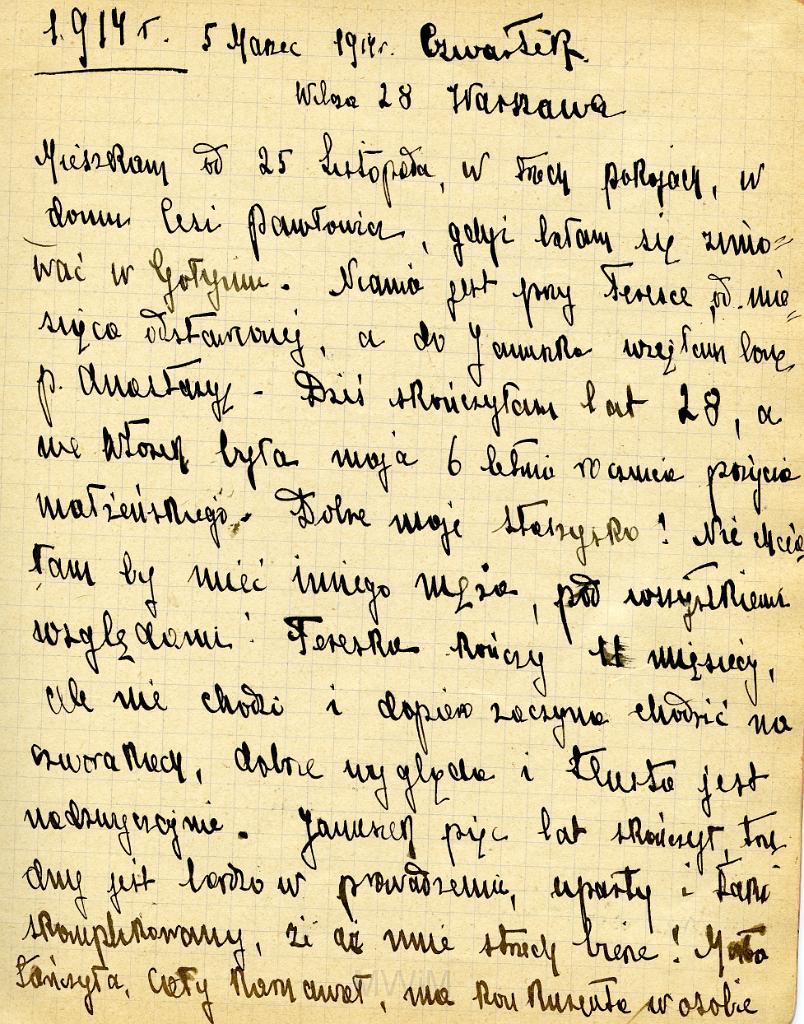 1.914 r. 5 Marzec 1914r. Czwartek.
Wilcza 28 Warszawa
Mieszkam od 25 Listopada, w trzech pokojach, w
domu Cesi Pawłowicz, gdyż bałam się zimo=
wać w Gołyniu. Niania jest przy Teresce, od mie=
sięca odstawionej, a do Januszka wzięłam bonę
p. Anastazyę - Dziś skończyłam lat 28, a
we Wtorek była moja 6 letnia rocznica pożycia
małżeńskiego. Dobre moje Staszysko! Nie chcia
łam by mieć innego męża, pod wszystkiemi
względami! Tereska kończy 11 miesięcy,
ale nie chodzi i dopiero zaczyna chodzić na
czworakach, dobrze wygląda i tłusta jest
nadzwyczajnie. Januszek pięć lat skończył, tru
dny jest bardzo w prowadzeniu, uparty i taki
skomplikowany, że aż mnie strach bierze!
tańczyła, cały karnawał, ma konkurenta w osobie
MWiM